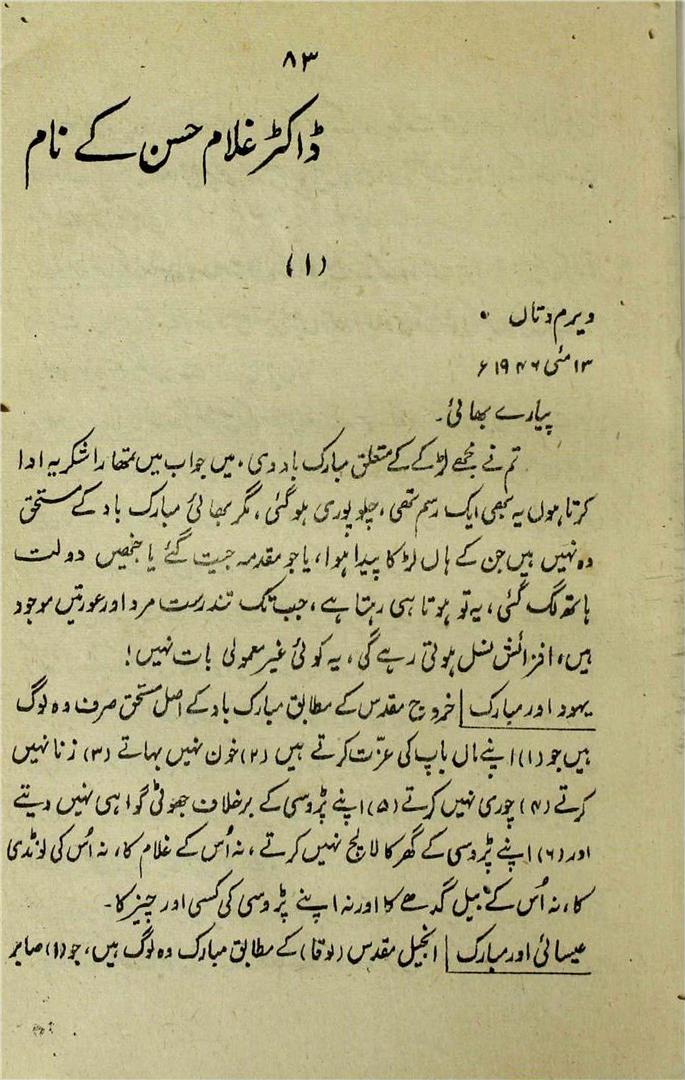 ۸۳
ڈاکٹر غلام حسن کے نام
(۱)
ویرم دتاں
۱۳ مئی ۱۹۴۶ء
پیارے بھائی۔
تم نے مجھے لڑکے کے متعلق مبارک باد دی، میں جواب میں تمھارا شکریہ ادا
کرتا ہوں یہ بھی ایک رسم تھی، چلو پوری ہو گئی، مگر بھائی مبارک باد کے مستحق
وہ نہیں ہیں جن کے ہاں لڑکا پیدا ہوا، یا جو مقدمہ جیت گئے یا جنھیں دولت
ہاتھ لگ گئی، یہ تو ہوتا ہی رہتا ہے، جب تک تندرست مرد اور عورتیں موجود
ہیں، افزائش نسل ہوتی رہے گی، یہ کوئی غیر معمولی بات نہیں!
یہود اور مبارک | خروج مقدس کے مطابق مبارک باد کے اصل مستحق صرف وہ لوگ
ہیں جو (۱) اپنے ماں باپ کی عزّت کرتے ہیں (۲) خون نہیں بہاتے (۳) زنا نہیں
کرتے (۴) چوری نہیں کرتے (۵) اپنے پڑوسی کے برخلاف جھوٹی گواہی نہیں دیتے
اور (۶) اپنے پڑوسی کے گھر کا لالچ نہیں کرتے، نہ اُس کے غلام کا، نہ اُس کی لونڈی
کا، نہ اُس کے بیل گدھے کا اور نہ اپنے پڑوسی کی کسی اور چیز کا۔
عیسائی اور مبارک | انجیل مقدس (لوقا) کے مطابق مبارک وہ لوگ ہیں، جو (۱) صابر